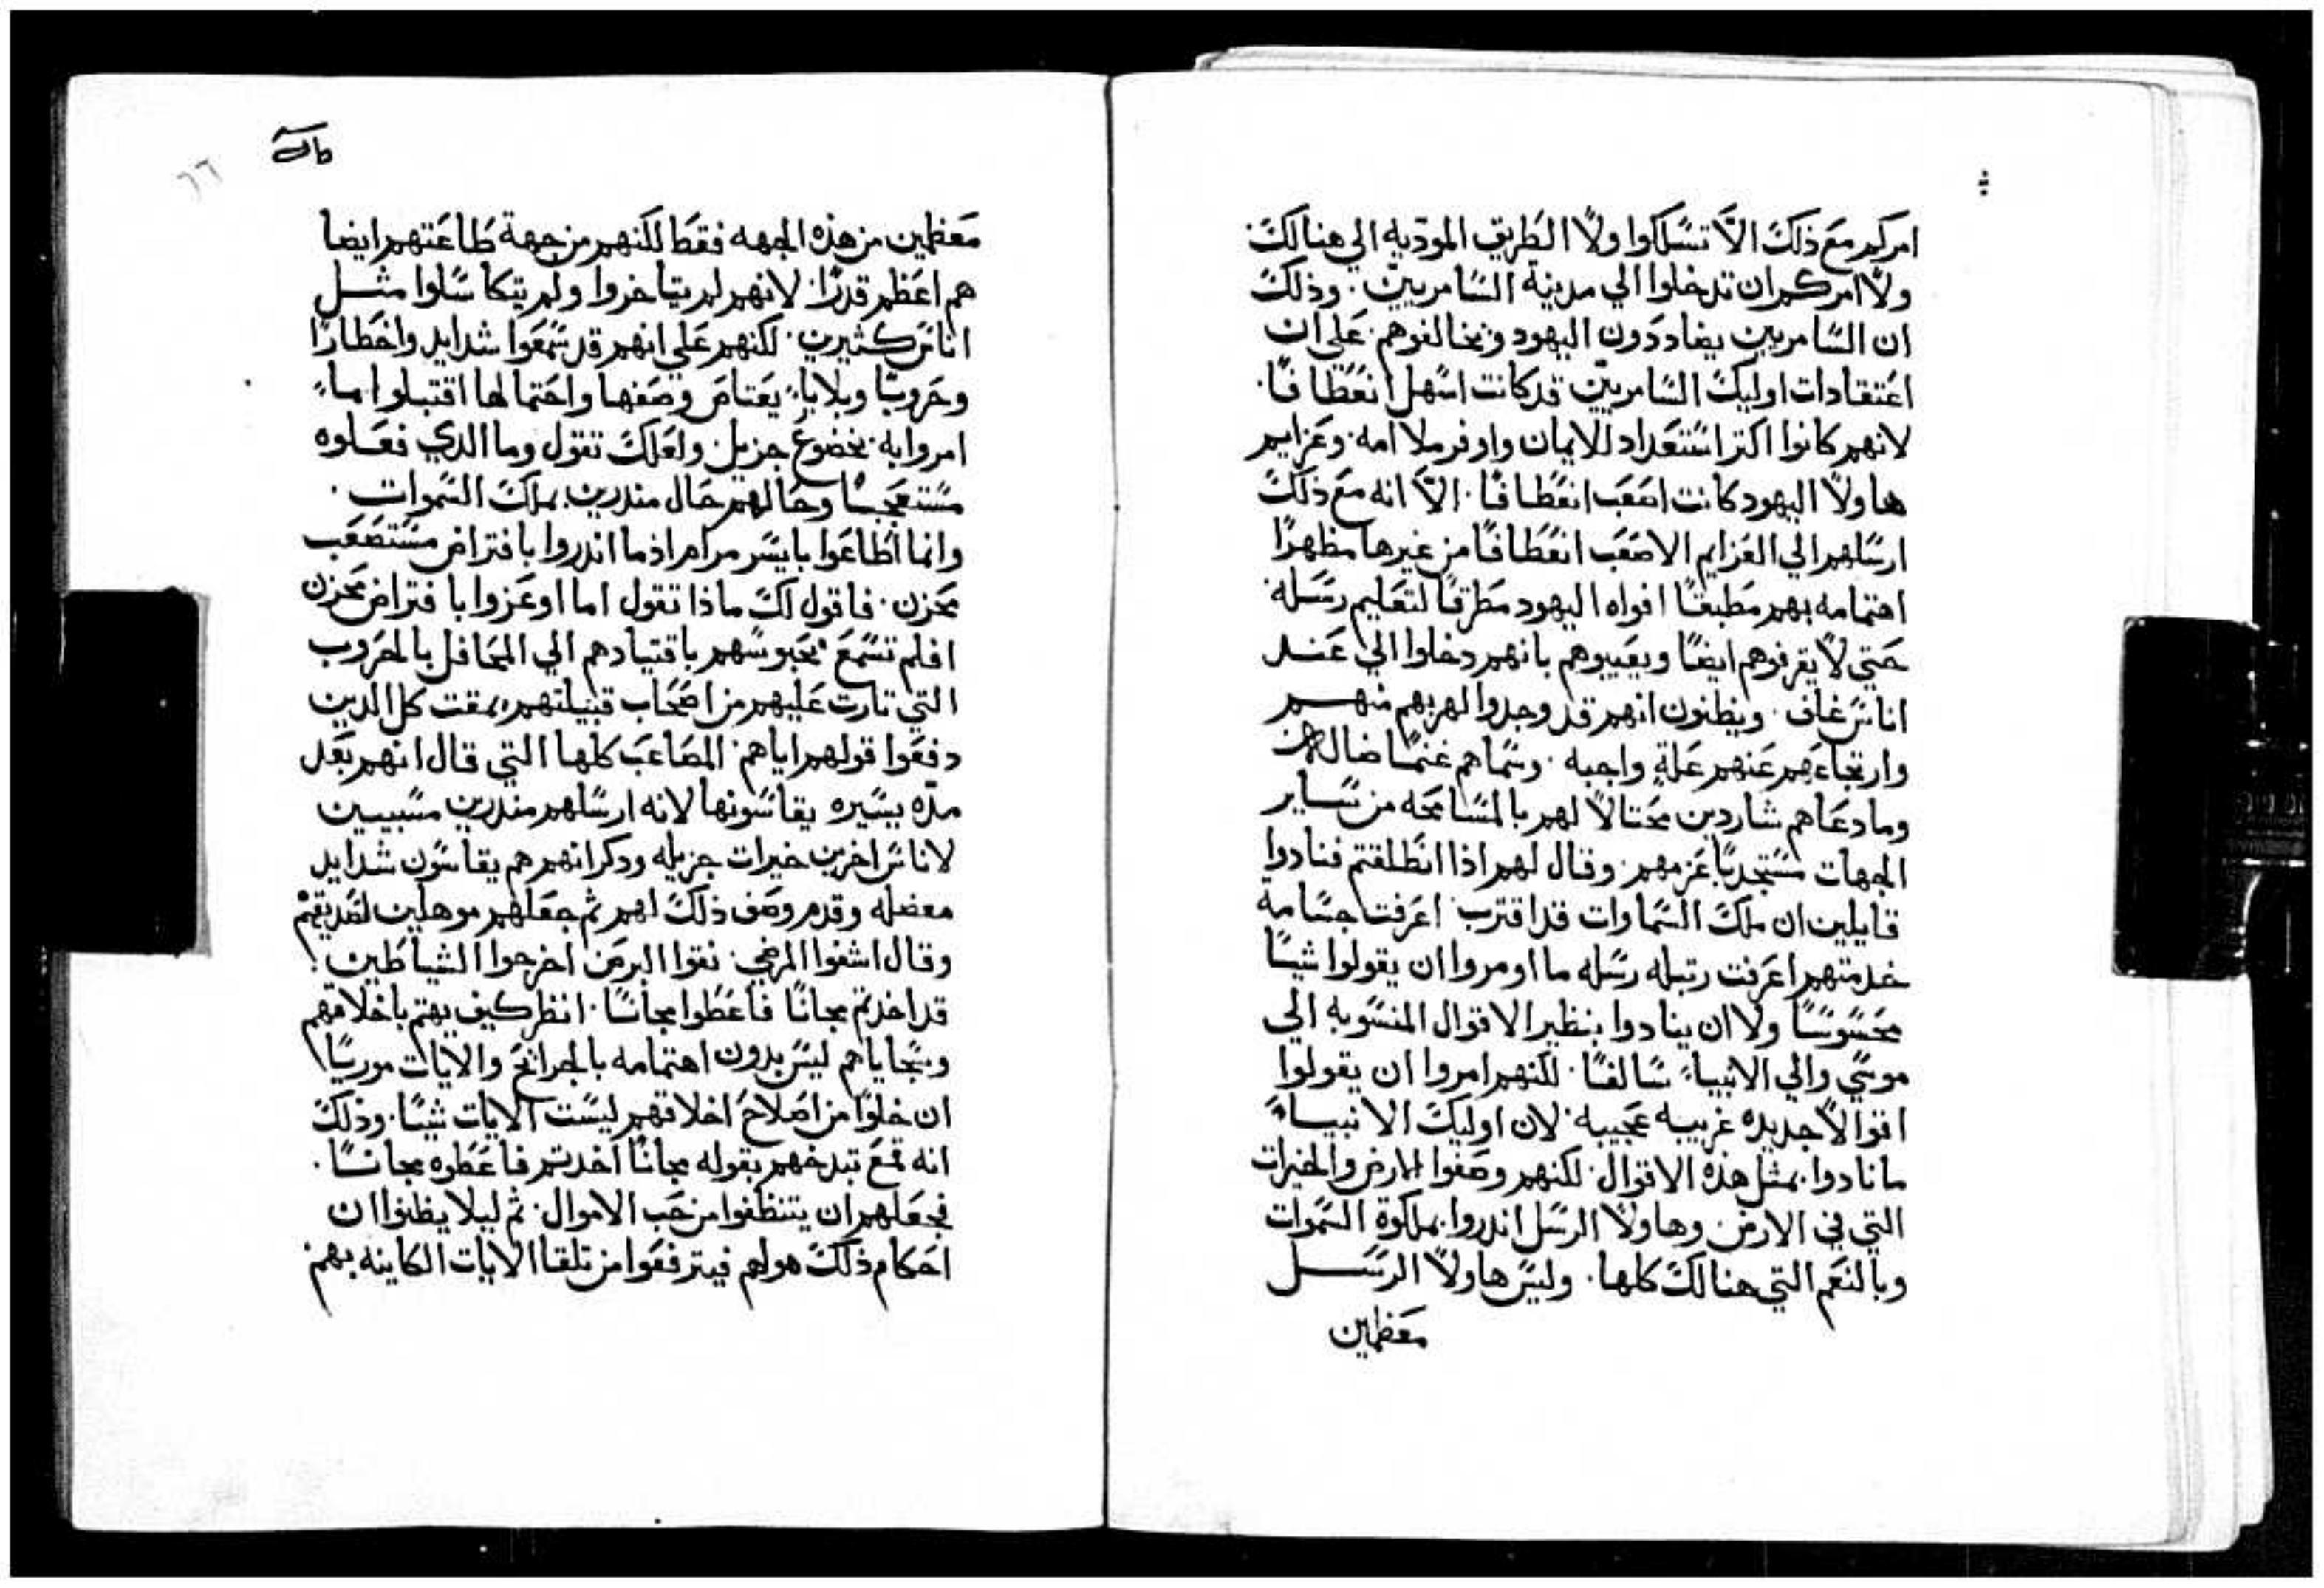 امركم مع ذلك الا تسلكوا ولا الطريق الموديه الي هنالك
ولا امركم ان تدخلوا الي مدينة السامريين. وذلك
ان السامريين يضاددون اليهود ويخالفوهم. علي ان
اعتقادات اوليك السامريين قد كانت اسهل انعطافا.
لانهم كانوا اكتر استعداد للايمان واوفر ملاامه. وعزايم
هاولا اليهود كانت اصعب انعطافا. الا انه مع ذلك
ارسلهم الي العزايم الاصعب انعطافا من غيرها مظهرا
اهتمامه بهم مطبقا افواه اليهود مطرقا لتعليم رسله
حتي لا يقرفوهم ايضا ويعيبوهم بانهم دخلوا الي عند
اناس غلف. ويظنون انهم قد وجدوا لهربهم منهم
وارتجاعهم عنهم علة واجبه. وسماهم غنما ضاله
وما دعاهم شاردين محتالا لهم بالمسامحه من ساير
الجهات مستجدبا عزمهم. وقال لهم اذا انطلقتم فنادوا
قايلين ان ملك السماوات قد اقترب اعرفت جسامة
خدمتهم اعرفت رتبة رسله ما اومروا ان يقولوا شيا
محسوسا ولا ان ينادوا بنظير الاقوال المنسوبه الي
موسي والي الانبياء سالفا. لكنهم امروا ان يقولوا
اقوالا جديده غريبه عجيبه. لان اوليك الانبياء
ما نادوا بمثل هذه الاقوال. لكنهم وصفوا الارض والخيرات
التي في الارض. وهاولا الرسل اندروا بملكوة السموات
وبالنعم التي هنالك كلها. وليس هاولا الرسل
معظمين
٦٦
معظمين من هذه الجهه فقط لكنهم من جهة طاعتهم ايضا
هم اعظم قدرا. لانهم لم يتاخروا ولم يتكاسلوا مثل
اناس كثيرين. لكنهم علي انهم قد سمعوا شدايد واخطارا
وحروبا وبلايا يعتاص وصفها واحتمالها اقتبلوا ما
امروا به. بخضوع جزيل ولعلك تقول وما الدي فعلوه
مستعجبا وحالهم حال مندرين بملك السموات.
وانما اطاعوا بايسر مرام اذ ما اندروا بافتراض مستصعب
محزن. فاقول لك ماذا تقول اما اوعزوا بافتراض محزن
افلم تسمع بحبوسهم باقتيادهم الي المحافل بالحروب
التي تارت عليهم من اصحاب قبيلتهم بمقت كل الدين
دفعوا قولهم اياهم. المصاعب كلها التي قال انهم بعد
مده يسيره يقاسونها لانه ارسلهم مندرين مسببين
لاناس اخرين خيرات جزيله ودكر انهم هم يقاسون شدايد
معضله وقدم وصف ذلك لهم ثم جعلهم موهلين لتصديقهم
وقال اشفوا المرضي. نقوا البرص اخرجوا الشياطين.
قد اخدتم مجانا فاعطوا مجانا. انظر كيف يهتم باخلاقهم
وسجاياهم ليس بدون اهتمامه بالجرائح والايات موريا
ان خلوا من اصلاح اخلاقهم ليست الايات شيا. وذلك
انه قمع تبدخهم بقوله مجانا اخدتم فاعطوه مجانا.
فجعلهم ان يتنظفوا من حب الاموال. ثم ليلا يظنوا ان
احكام ذلك هو لهم فيترفعوا من تلقا الايات الكاينه بهم